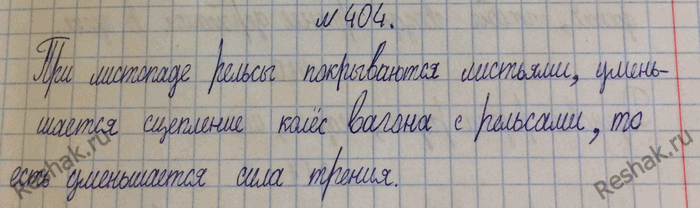 № 404.
При листопаде рельсы покрываются листьями, умень-
шается сцепление колёс вагона с рельсами, то
есть уменьшается сила трения.
Reshak.ru
Reshak.ru